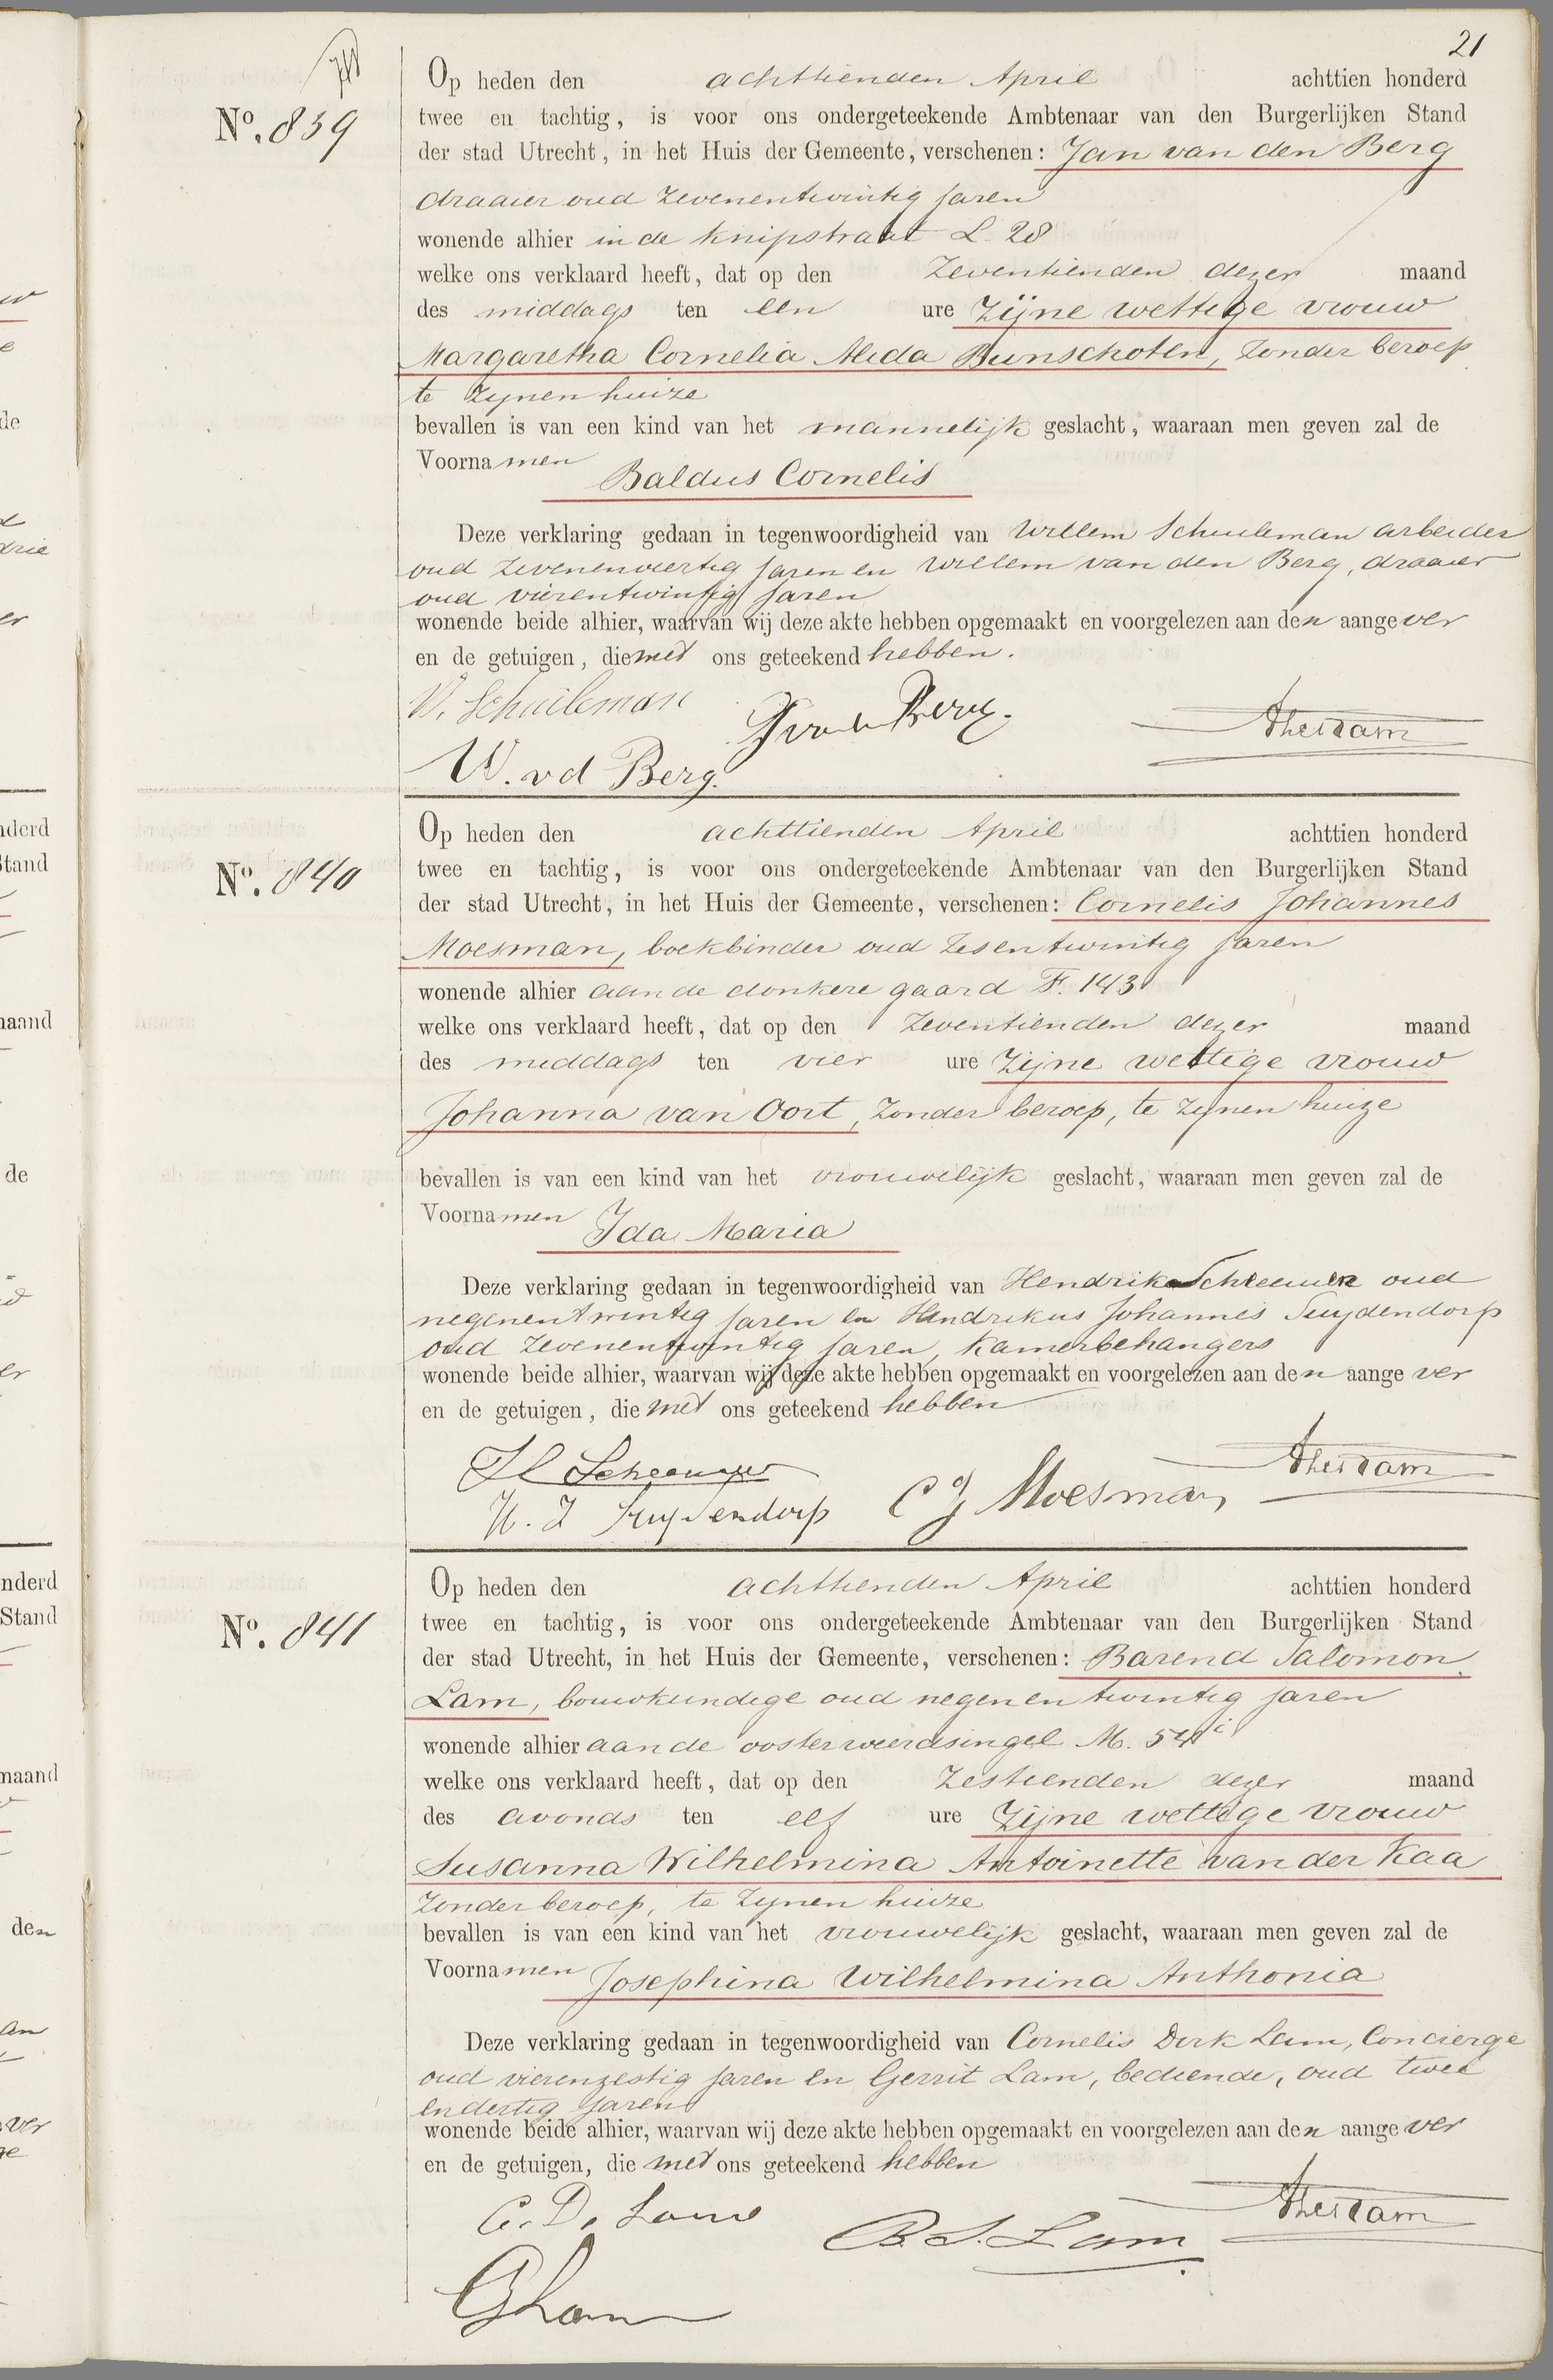 21
Nº. 839
Op heden den achttienden April achttien honderd
twee en tachtig, is voor ons ondergeteekende Ambtenaar van den Burgerlijken Stand
der stad Utrecht, in het Huis der Gemeente, verschenen: Jan van den Berg
draaier oud zevenentwintig jaren
wonende alhier in de Knipstraat L. 28
welke ons verklaard heeft, dat op den zeventienden dezer maand
des middags ten een ure zijne wettige vrouw
Margaretha Cornelia Alida Bunschoten, zonder beroep
te zijnen huize
bevallen is van een kind van het mannelijk geslacht, waaraan men geven zal de
Voornamen
Baldus Cornelis
Deze verklaring gedaan in tegenwoordigheid van Willem Schuileman arbeider
oud zevenenveertig jaren en Willem van den Berg, draaier
oud vierentwintig jaren
wonende beide alhier, waarvan wij deze akte hebben opgemaakt en voorgelezen aan den aangever
en de getuigen, die met ons geteekend hebben.
W. Schuileman
W. vd Berg.
Nº. 840
Op heden den achttienden April achttien honderd
twee en tachtig, is voor ons ondergeteekende Ambtenaar van den Burgerlijken Stand
der stad Utrecht, in het Huis der Gemeente, verschenen: Cornelis Johannes
Moesman, boekbinder oud zesentwintig jaren
wonende alhier aan de donkere gaard F. 143
welke ons verklaard heeft, dat op den zeventienden dezer maand
des middags ten vier ure zijne wettige vrouw
Johanna van Oort, zonder beroep, te zijnen huize
bevallen is van een kind van het vrouwelijk geslacht, waaraan men geven zal de
Voornamen
Ida Maria
Deze verklaring gedaan in tegenwoordigheid van Hendrik oud
negenentwintig jaren en Hendrikus Johannes Suydendorp
oud zevenentwintig jaren, Kamerbehangers
wonende beide alhier, waarvan wij deze akte hebben opgemaakt en voorgelezen aan den aangever
en de getuigen, die met ons geteekend hebben
H. J. Suydendorp
C J Moesman
Nº. 841
Op heden den achttienden April achttien honderd
twee en tachtig, is voor ons ondergeteekende Ambtenaar van den Burgerlijken Stand
der stad Utrecht, in het Huis der Gemeente, verschenen: Barend Salomon
Lam, bouwkundige oud negenentwintig jaren
wonende alhier aan de oosterweerdsingel M. 54 i
welke ons verklaard heeft, dat op den zestienden dezer maand
des avonds ten elf ure zijne wettige vrouw
Susanna Wilhelmina Antoinette van der Kaa
zonder beroep, te zijnen huize
bevallen is van een kind van het vrouwelijk geslacht, waaraan men geven zal de
Voornamen
Josephina Wilhelmina Anthonia
Deze verklaring gedaan in tegenwoordigheid van Cornelis Dirk Lam, Concierge
oud vierenzestig jaren en Gerrit Lam, bediende, oud twee
endertig jaren
wonende beide alhier, waarvan wij deze akte hebben opgemaakt en voorgelezen aan den aangever
en de getuigen, die met ons geteekend hebben
C. D. Lam
B. S. Lam
G Lam